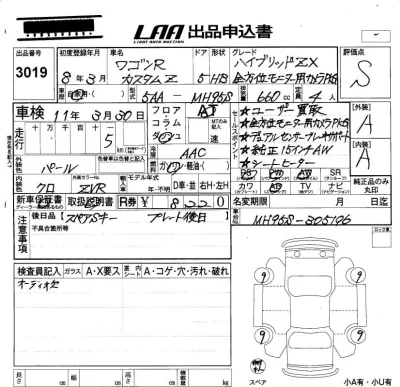 LAA 出品申込書
LIGHT AUTO AUCTION
出品番号
3019
初度登録年月
8年3月
車名
ワゴンR
カスタムZ
ドア 形状
5HB
グレード
ハイブリッドZX
全方位モニター用カメラPKG
評価点
S
自家用
型式
5AA-MH95S
排気量
660cc
定員
4人
車検
11年3月30日
走行
5
フロア
コラム
AT
MTのみ記入
速
セールスポイント
★ユーザー買取
★全方位モニター用カメラPKG
★デュアルセンサーブレーキサポート
★純正15インチAW
★シートヒーター
外装
A
内装
A
外装色
パール
色替車は色替と記入
冷房
AAC
燃料
ガソ
軽油
内装色
クロ
カラーNo
ZVR
輸入車
モデル年式
年・不明
D車・並
右H・左H
PS
PW
AW
SR
カワ
AB
TV
ナビ
純正品のみ丸印
新車保証書
取扱説明書
R券
¥
8220
名変期限
月
日迄
注意事項
後日品
スペアキー プレート後日
不具合箇所等
MH95S-305196
検査員記入
ガラス
A・X要ス
内シート
A・コゲ・穴・汚れ・破れ
オーディオレス
スペア
小A有・小U有
長さ
cm
幅
cm
高さ
cm
積載量
kg